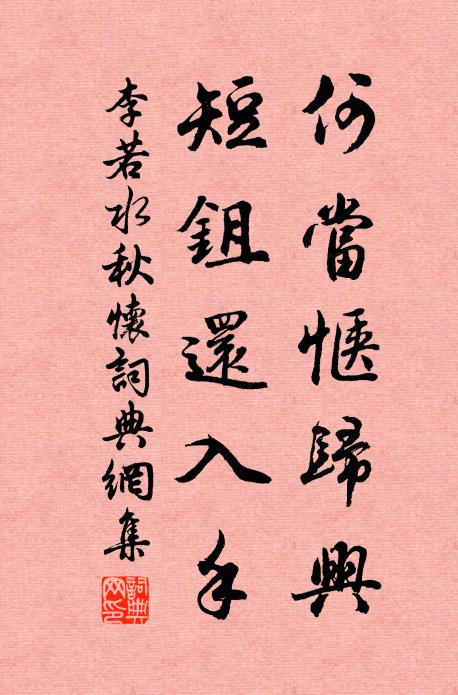 何當愜歸興
短鉏還入手
李若水秋懷詞典網集
詞典网印